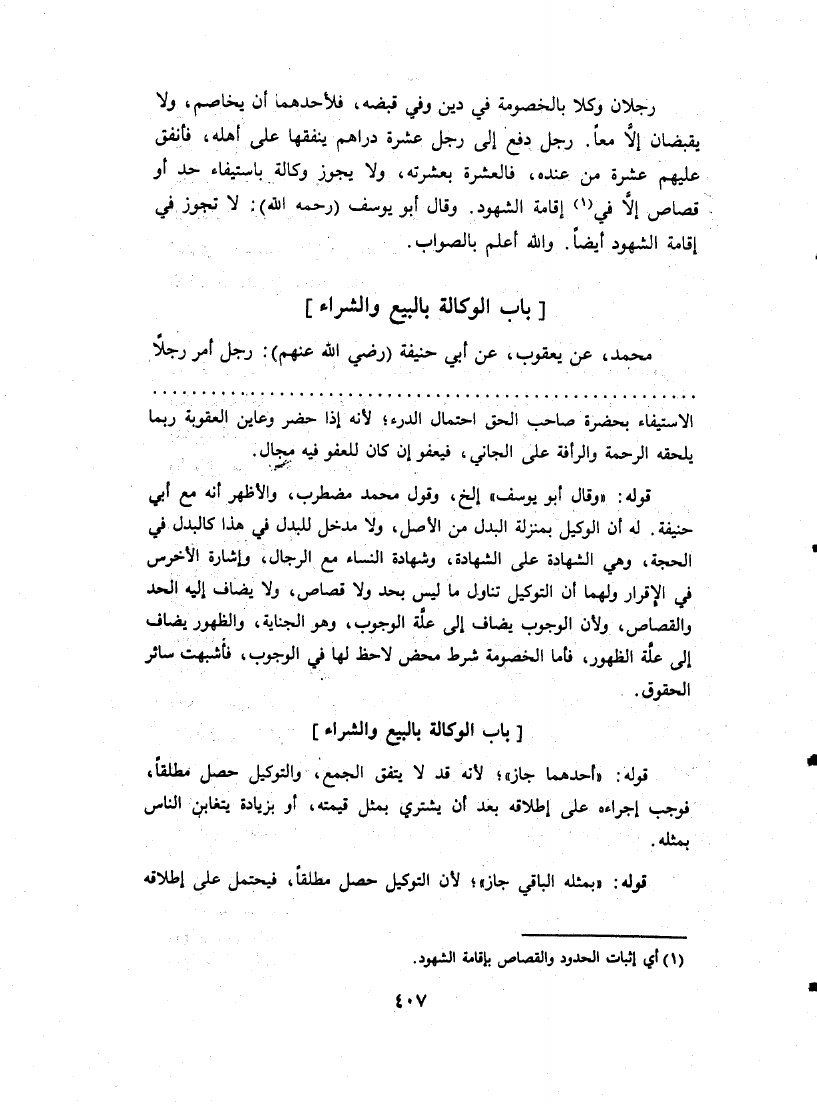 رجلان وكلا بالخصومة في دين وفي قبضه، فلأحدهما أن يخاصم، ولا
يقبضان إلَّا معاً. رجل دفع إلى رجل عشرة دراهم ينفقها على أهله، فأنفق
عليهم عشرة من عنده، فالعشرة بعشرته، ولا يجوز وكالة باستيفاء حد أو
قصاص إلَّا في(١) إقامة الشهود. وقال أبو يوسف (رحمه الله): لا تجوز في
إقامة الشهود أيضاً. والله أعلم بالصواب.
[ باب الوكالة بالبيع والشراء ]
محمد، عن يعقوب، عن أبي حنيفة (رضي الله عنهم): رجل أمر رجلاً
الاستيفاء بحضرة صاحب الحق احتمال الدرء؛ لأنه إذا حضر وعاين العقوبة ربما
يلحقه الرحمة والرأفة على الجاني، فيعفو إن كان للعفو فيه مجال.
قوله: «وقال أبو يوسف» إلخ، وقول محمد مضطرب، والأظهر أنه مع أبي
حنيفة. له أن الوكيل بمنزلة البدل من الأصل، ولا مدخل للبدل في هذا كالبدل في
الحجة، وهي الشهادة على الشهادة، وشهادة النساء مع الرجال، وإشارة الأخرس
في الإقرار ولهما أن التوكيل تناول ما ليس بحد ولا قصاص، ولا يضاف إليه الحد
والقصاص، ولأن الوجوب يضاف إلى علَّة الوجوب، وهو الجناية، والظهور يضاف
إلى علَّة الظهور، فأما الخصومة شرط محض لاحظ لها في الوجوب، فأشبهت سائر
الحقوق.
[ باب الوكالة بالبيع والشراء ]
قوله: «أحدهما جاز»؛ لأنه قد لا يتفق الجمع، والتوكيل حصل مطلقاً،
فوجب إجراءه على إطلاقه بعد أن يشتري بمثل قيمته، أو بزيادة يتغابن الناس
بمثله.
قوله: «بمثله الباقي جاز»؛ لأن التوكيل حصل مطلقاً، فيحتمل على إطلاقه
(١) أي إثبات الحدود والقصاص بإقامة الشهود.
٤٠٧